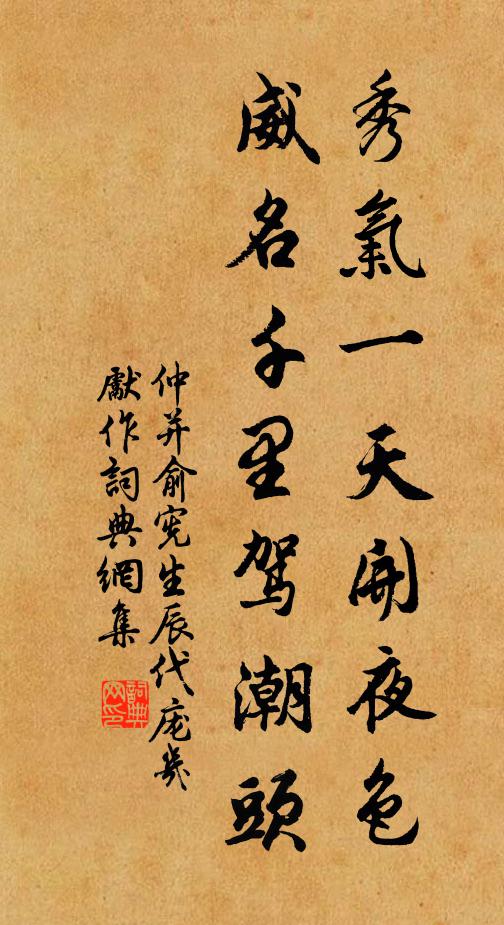 秀氣一天開夜色
威名千里駕潮頭
仲并俞宪生辰代庞幾
獻作詞典網集
詞典网印